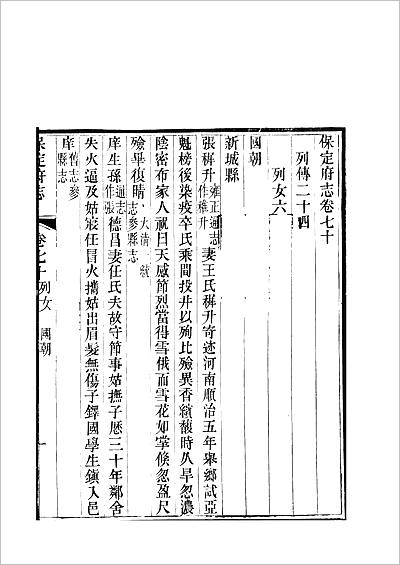 保定府志卷七十
列傳二十四
列女六
國朝
新城縣
張穉升雍正通志作稚升妻王氏穉升寄迹河南順治五年舉鄉試亞
魁榜後染疫卒氏乘間投井以殉比殮異香繽馥時久旱忽濃
陰密布家人祝曰天感節烈當得雪俄而雪花如掌倐忽盈尺
殮畢復晴大清一統志參縣志
庠生孫通志作張德昌妻任氏夫故守節事姑撫子歷三十年鄰舍
失火逼及姑寢任冒火攜姑出眉髮無傷子鐸國學生鎮入邑
庠舊志參縣志
保定府志
卷七十列女
國朝
一